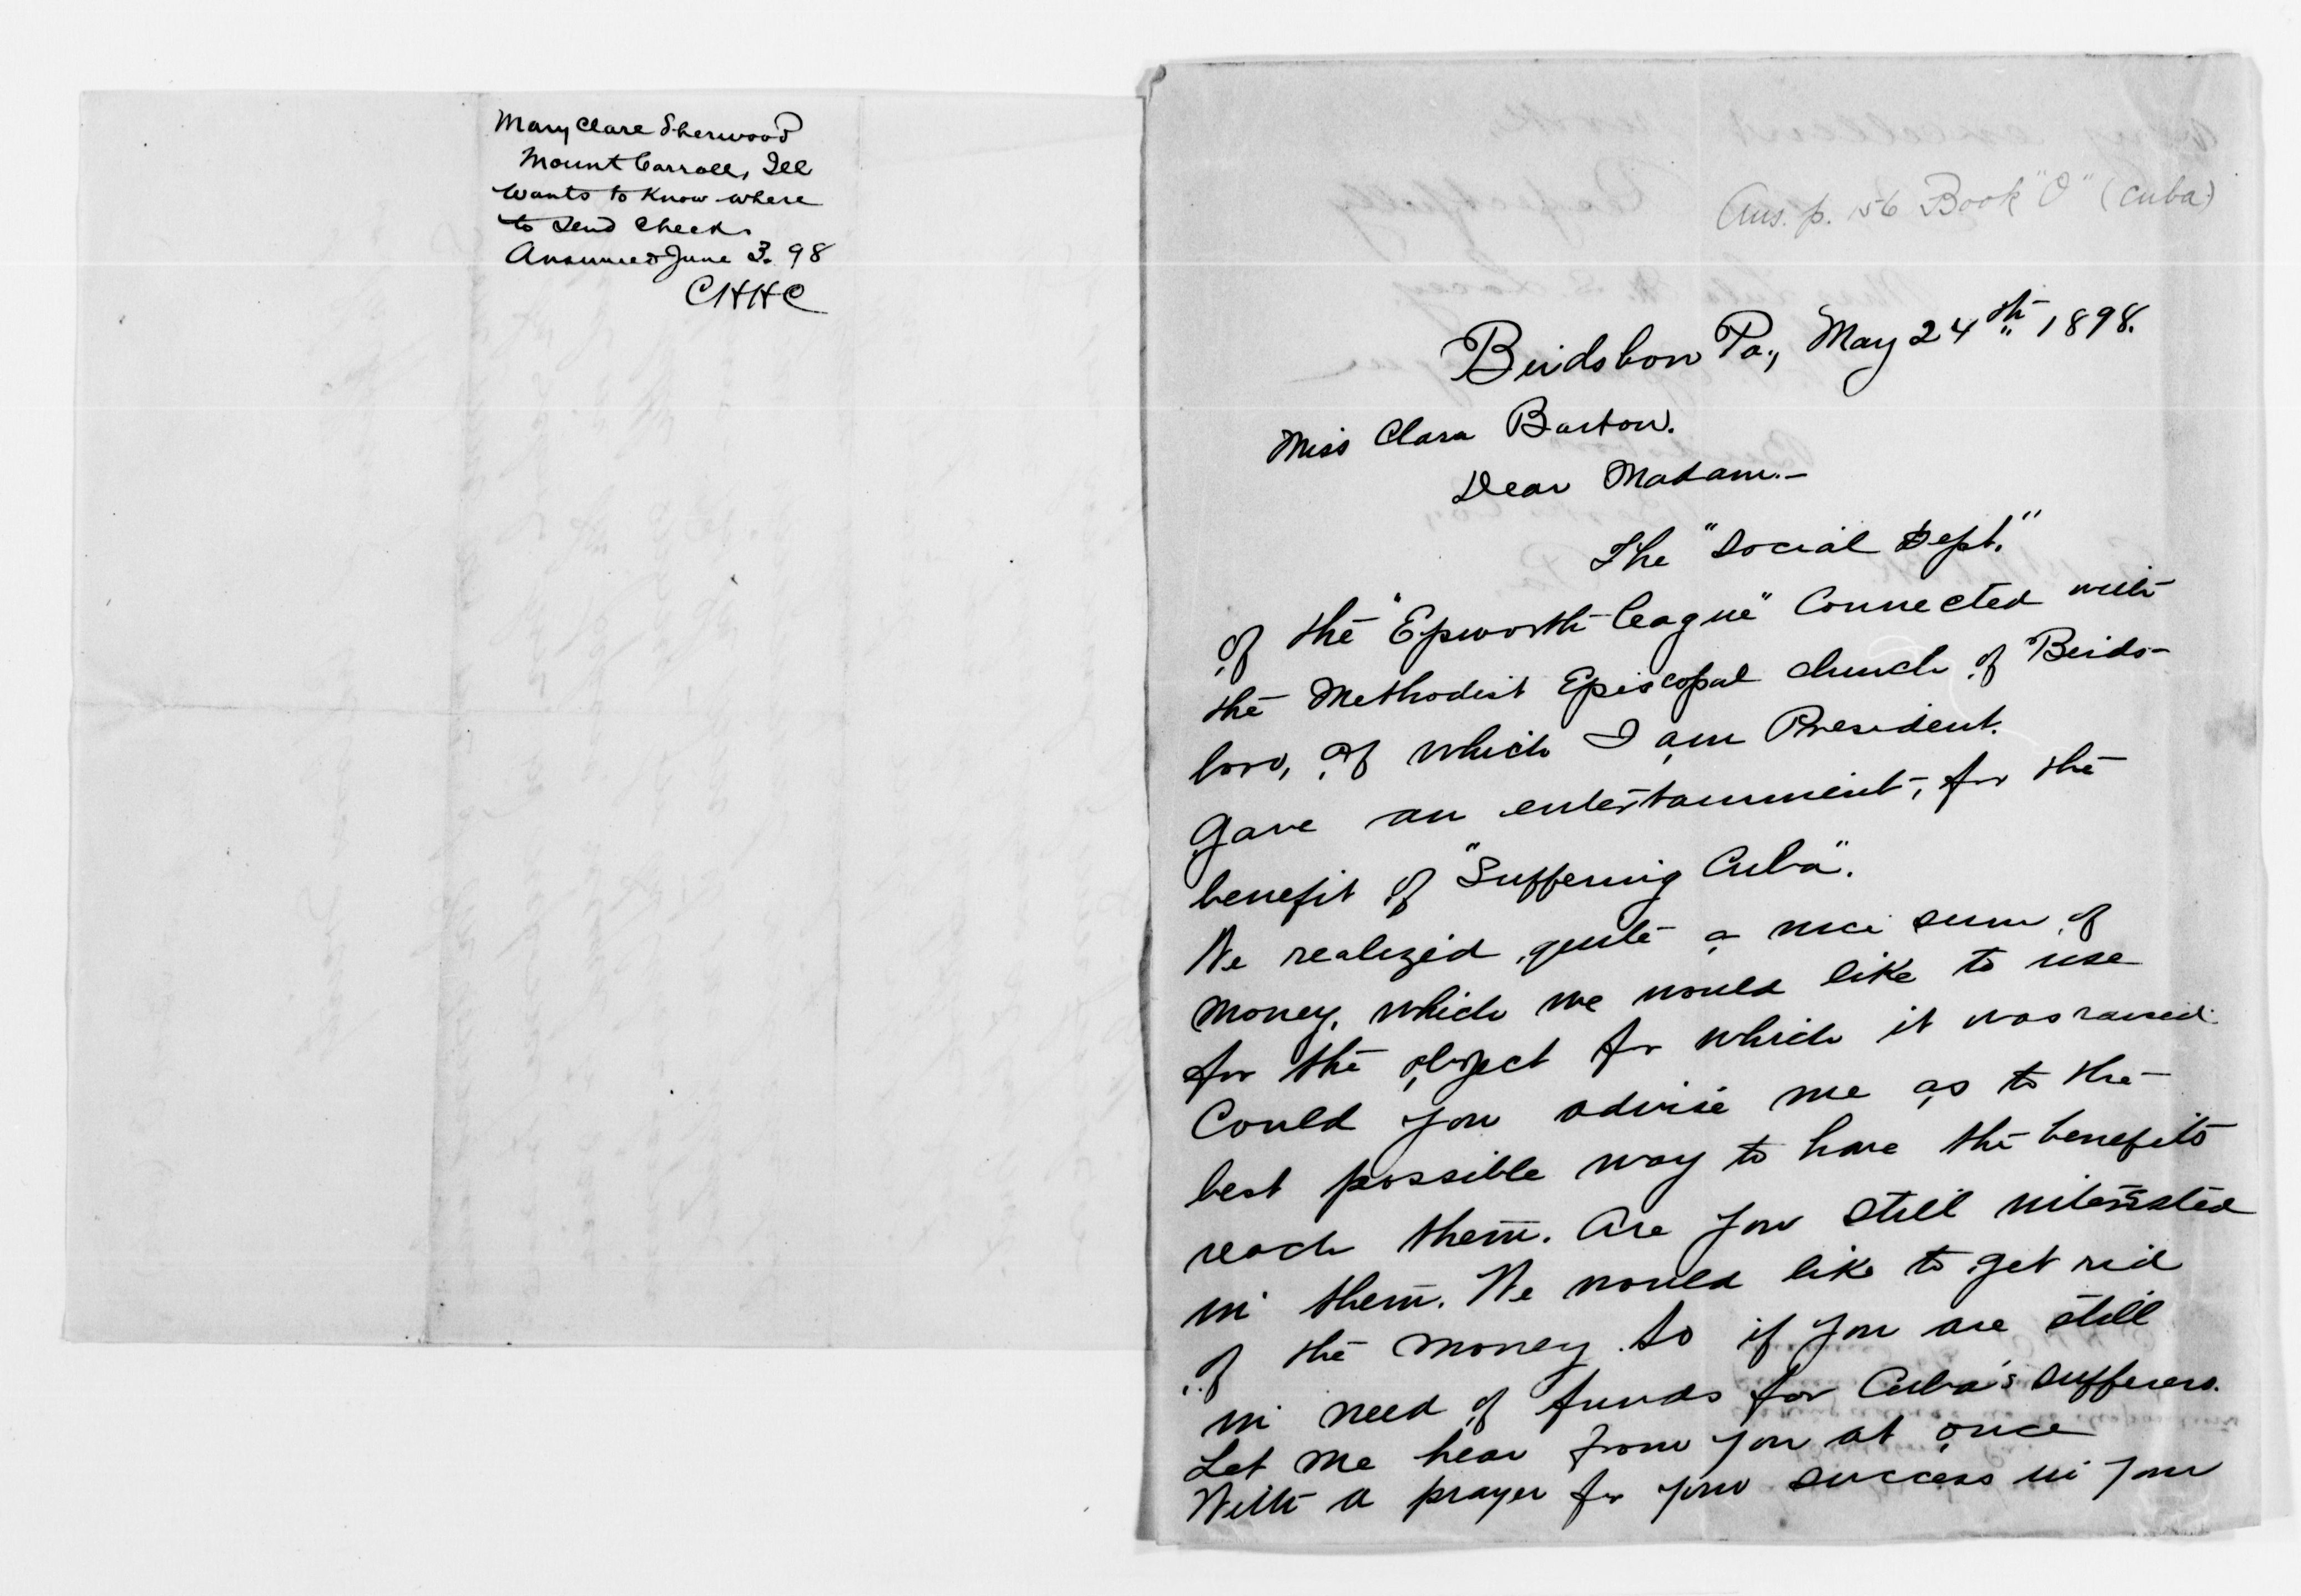 Mary Clare Sherwood
Mount Carroll, Ill
Wants to know where
to send checks
Answered June 3. 98
CHHC
Ans. p. 156 Book "O" (Cuba)
Birdsboro Pa., May 24th 1898.
Miss Clara Barton.
Dear Madam.—
The "Social Dept."
of the "Epworth League" Connected with
the Methodist Episcopal church of Birds-
boro, of which I am President.
Gave an entertainment, for the
benefit of "Suffering Cuba".
We realized quite a nice sum of
money, which we would like to use
for the object for which it was raised.
Could you advise me as to the
best possible way to have the benefits
reach them. Are you still interested
in them. We would like to get rid
of the money so if you are still
in need of funds for Cuba's sufferers.
Let me hear from you at once
With a prayer for your success in your